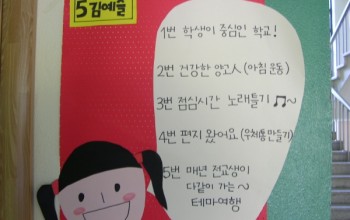 5 김예슬
1번 학생이 중심인 학교!
2번 건강한 양고人 (아침 운동)
3번 점심시간 노래틀기 ♫~
4번 편지 왔어요 (우체통 만들기)
5번 매년 전교생이
다같이 가는~
테마여행